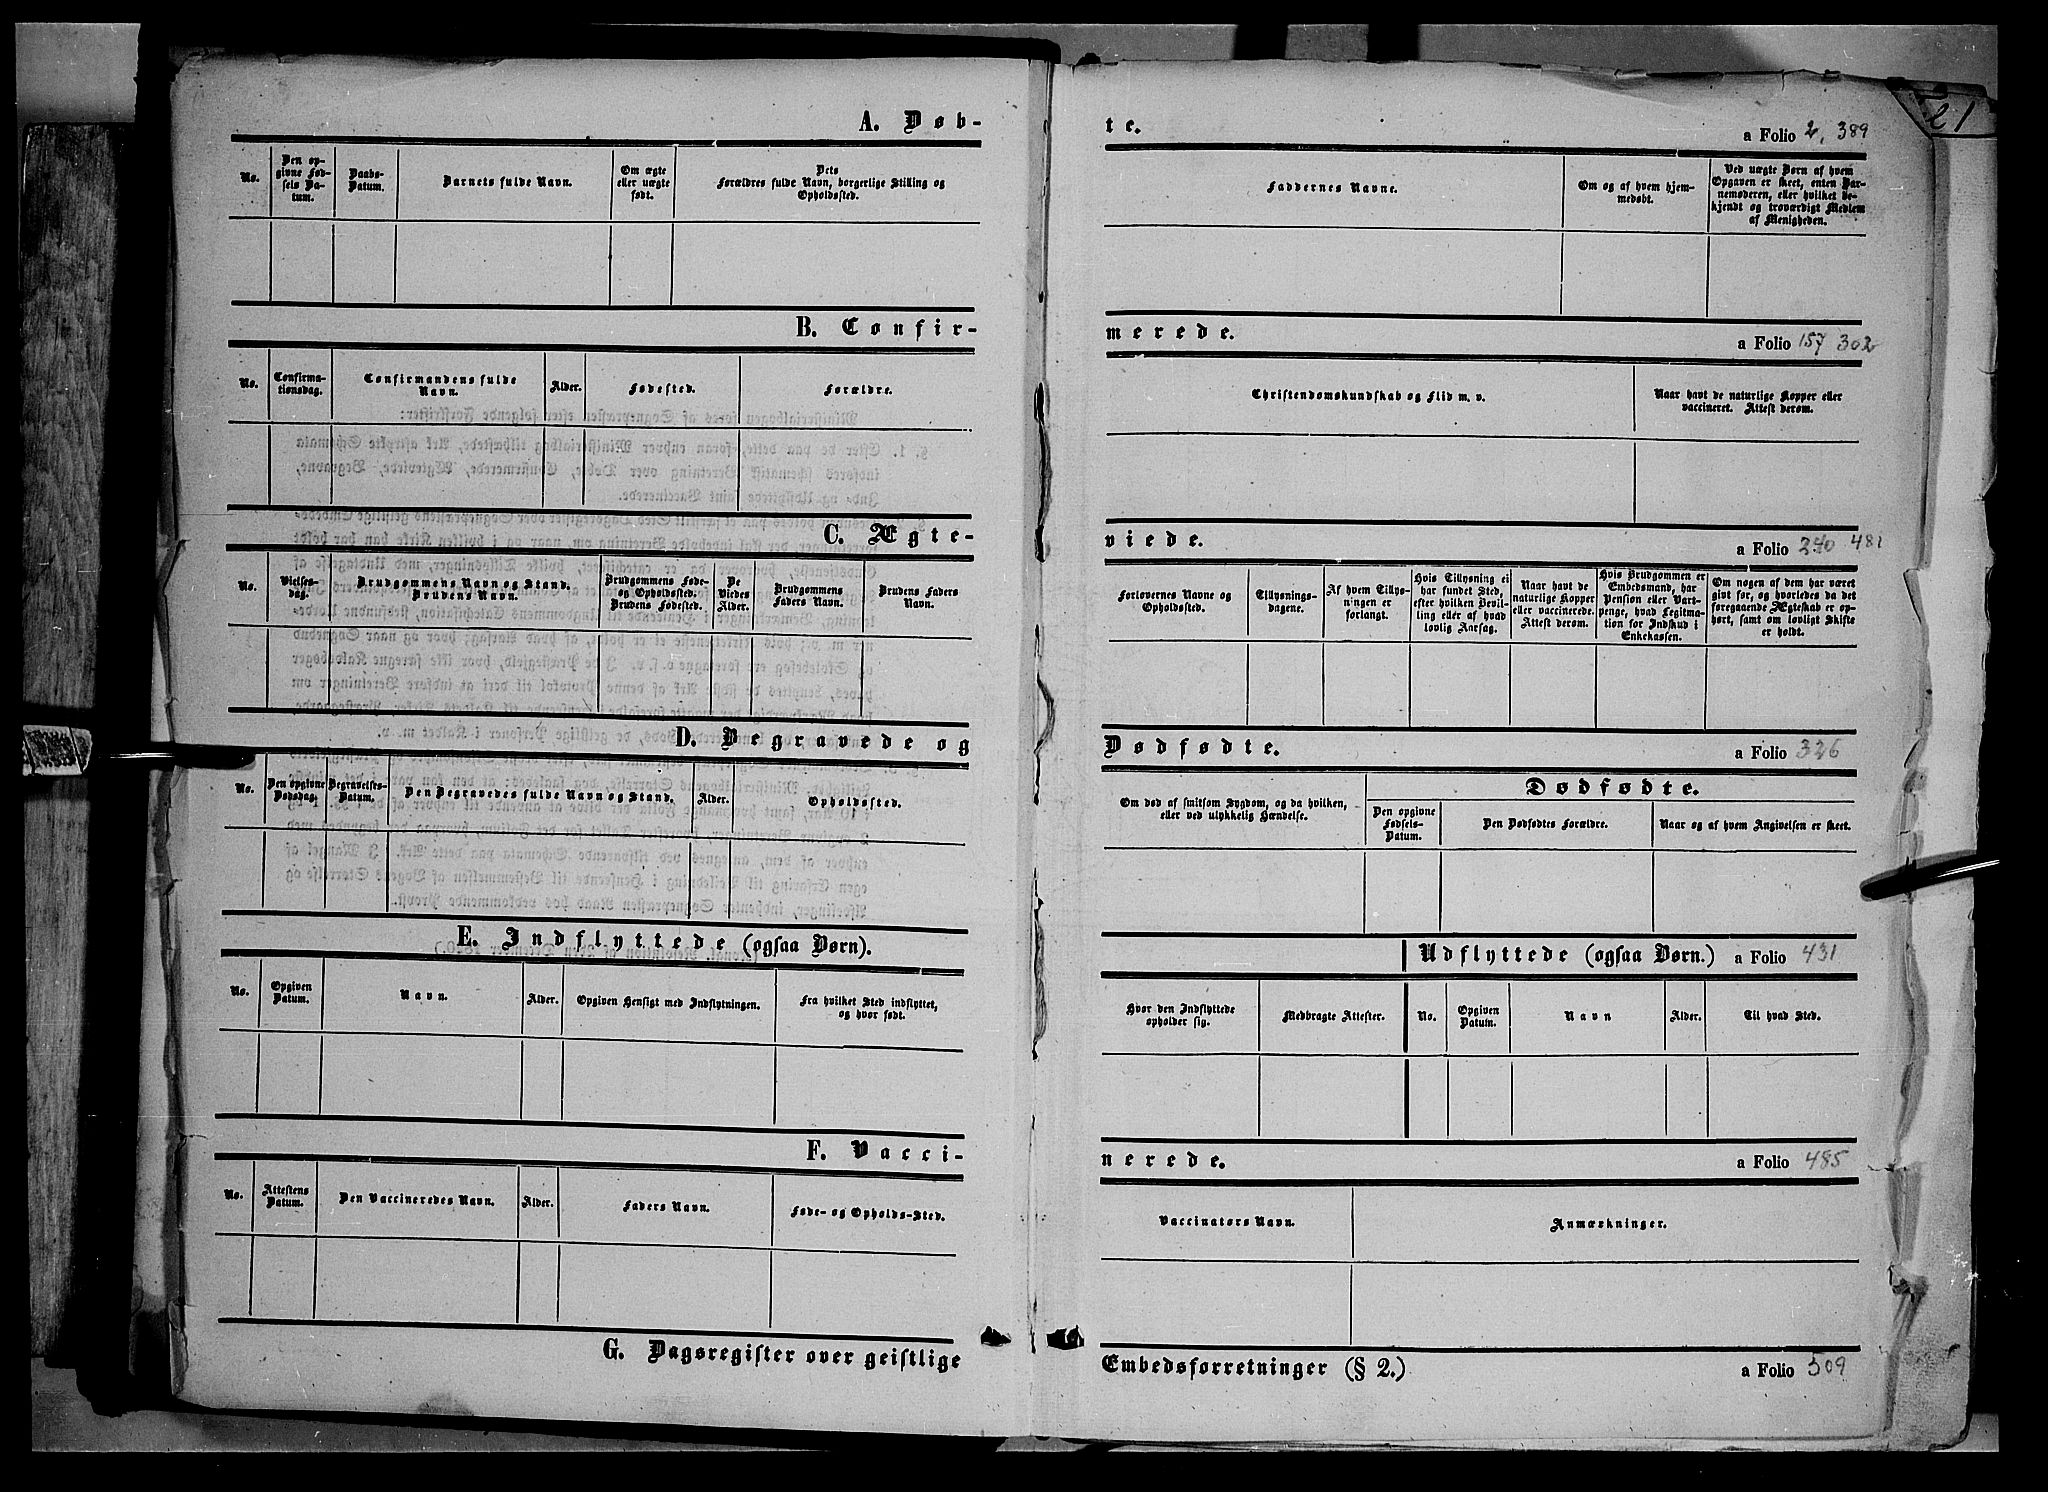 21
A. Døb-
te.
a Folio 2, 389
No.
Den op-
givne Fød-
sels Da-
tum.
Daabs-
Datum.
Barnets fulde Navn.
Om ægte
eller uægte
født.
Dets
Forældres fulde Navn, borgerlige Stilling og
Opholdsted.
Faddernes Navne.
Om og af hvem hjem-
medøbt.
Ved uægte Børn af hvem
Opgaven er skeet, enten Bar-
nemoderen, eller hvilket be-
kjendt og troværdigt Medlem
af Menigheden.
B. Confir-
merede.
a Folio 157 302
No.
Confirma-
tionsdag.
Confirmandens fulde
Navn.
Alder.
Fødested.
Forældre.
Christendomskundskab og Flid m. v.
Naar havt de naturlige Kopper eller
vaccineret. Attest derom.
C. Ægte-
viede.
a Folio 240 481
No.
Vielses-
dag.
Brudgommens Navn og Stand.
Brudens Navn.
Brudgommens Føde-
og Opholdssted.
Brudens Fødested.
De
Viedes
Alder.
Brudgommens
Faders Navn.
Brudens Faders
Navn.
Forlovernes Navne og
Opholdssted.
Tillysnings-
dagene.
Af hvem Tillys-
ningen er
forlangt.
Hvis Tillysning ei
har fundet Sted,
efter hvilken Bevil-
ling eller af hvad
lovlig Aarsag.
Naar havt de
naturlige Kopper
eller vaccinerede.
Attest derom.
Hvis Brudgommen er
Embedsmand, har
Pension eller Vart-
penge, hvad Legitima-
tion for Indskud i
Enkekassen.
Om nogen af dem har været
givt før, og hvorledes da det
foregaaende Ægteskab er op-
hørt, samt om lovligt Skifte
er holdt.
D. Begravede og
Dødfødte.
a Folio 326
No.
Den opgivne
Dødsdag.
Begravelses-
Datum.
Den Begravedes fulde Navn og Stand.
Alder.
Opholdssted.
Om død af smitsom Sygdom, og da hvilken,
eller ved ulykkelig Hændelse.
Dødfødte.
Den opgivne
Fødsels-
Datum.
Den Dødfødtes Forældre.
Naar og af hvem Angivelsen er skeet.
E. Indflyttede (ogsaa Børn).
Udflyttede (ogsaa Børn.)
a Folio 431
No.
Opgiven
Datum.
Navn.
Alder.
Opgiven Hensigt med Indflytningen.
Fra hvilket Sted indflyttet,
og hvor født.
Hvor den Indflyttede
opholder sig.
Medbragte Attester.
No.
Opgiven
Datum.
Navn
Alder.
Til hvad Sted.
F. Vacci-
nerede.
a Folio 485
No.
Attestens
Datum.
Den Vaccineredes Navn.
Alder.
Faders Navn.
Føde- og Opholds-Sted.
Vaccinators Navn.
Anmærkninger.
G. Dagsregister over geistlige
Embedsforretninger (§ 2.)
a Folio 509